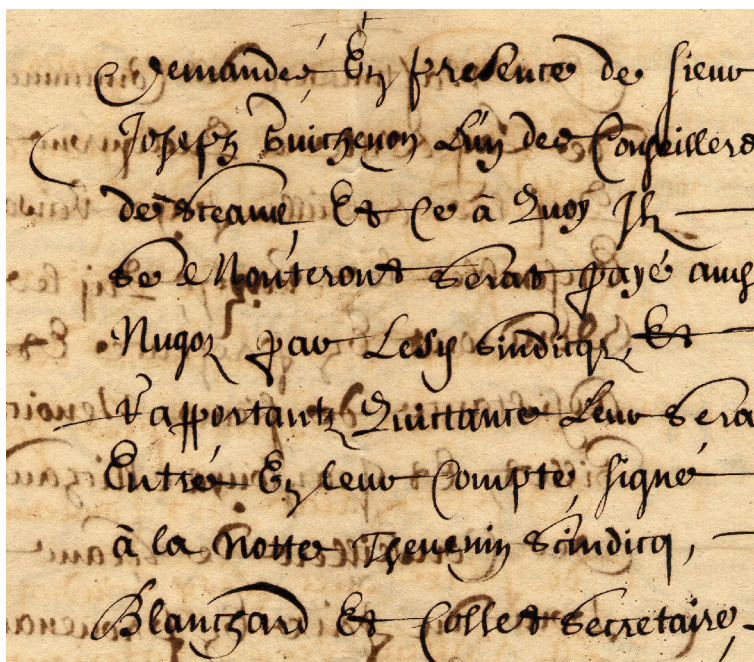 Demandes, En presence de sieur
Joseph Guichenon L'un des Conseillers
de sceans, Et Ce à Quoy Ils
se Monteront serat payé aus
Nuqoz par Lesd sindicqz, Et
Rapportantz Quittance Leur sera
Entré En leur Compte, signé
à la Notte Thevenin scindicq,
Blanchard Et Collet secretaire